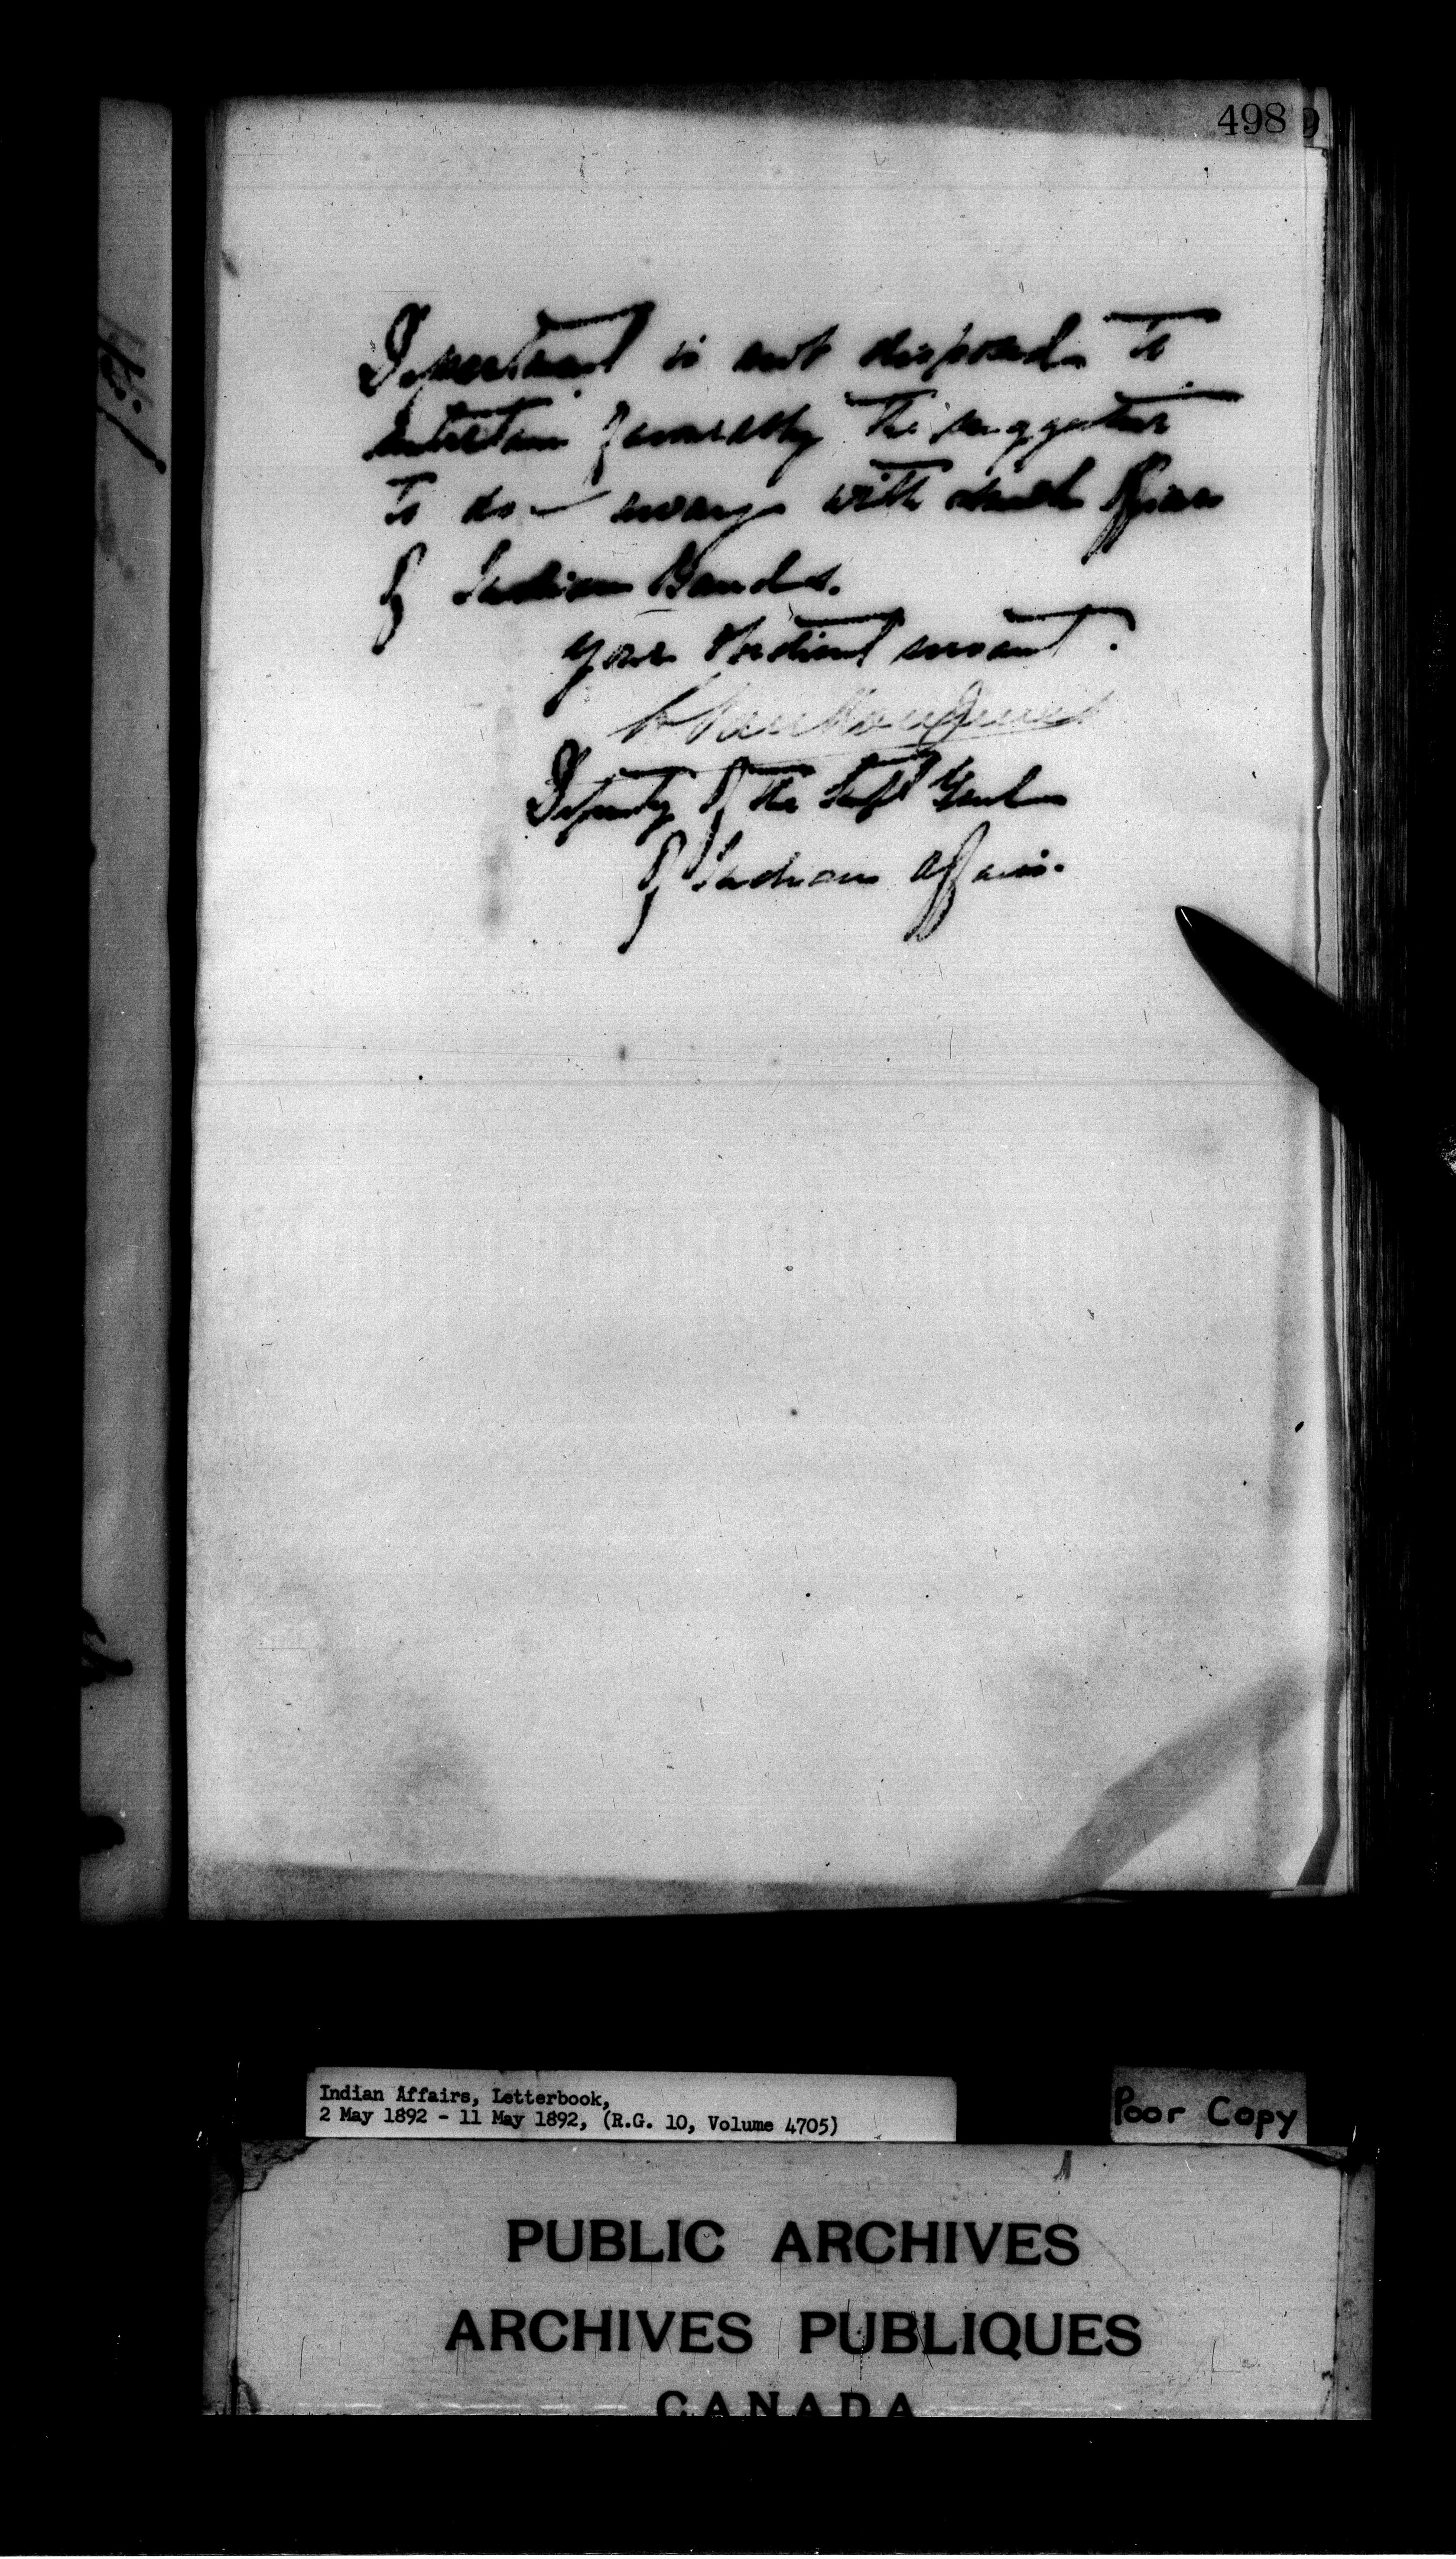 498
Department is not disposed to
entertain favourably the suggestion
to do away with such Officers
of Indian Bands.
your obedient servant.
L Vankoughnet
Deputy of the Supt Genl
of Indian Affairs.
Indian Affairs, Letterbook,
2 May 1892 - 11 May 1892, (R.G. 10, Volume 4705)
Poor Copy
PUBLIC ARCHIVES
ARCHIVES PUBLIQUES
CANADA